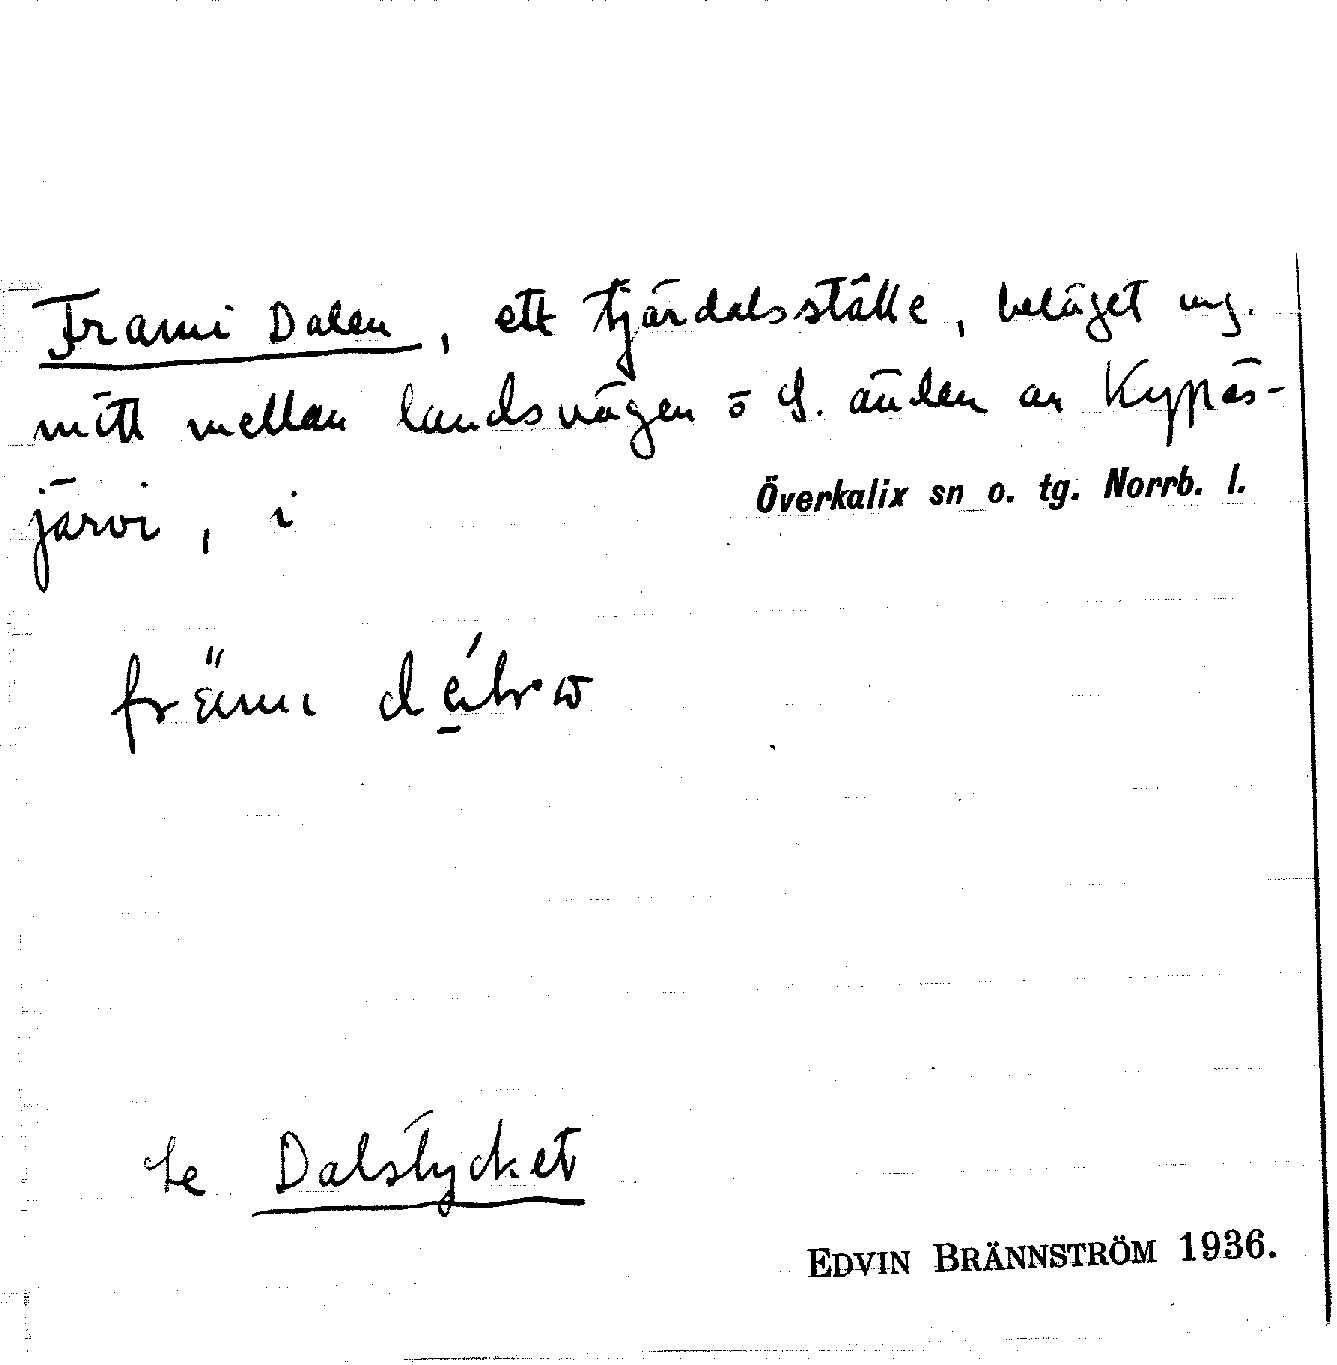 Frami Dalen, ett tjärdalsställe, beläget ung.
mitt mellan landsvägen o S. änden av Kypäs-
järvi, i
Överkalix sn o. tg. Norrb. l.
främi
se Dalstycket
EDVIN BRÄNNSTRÖM 1936.